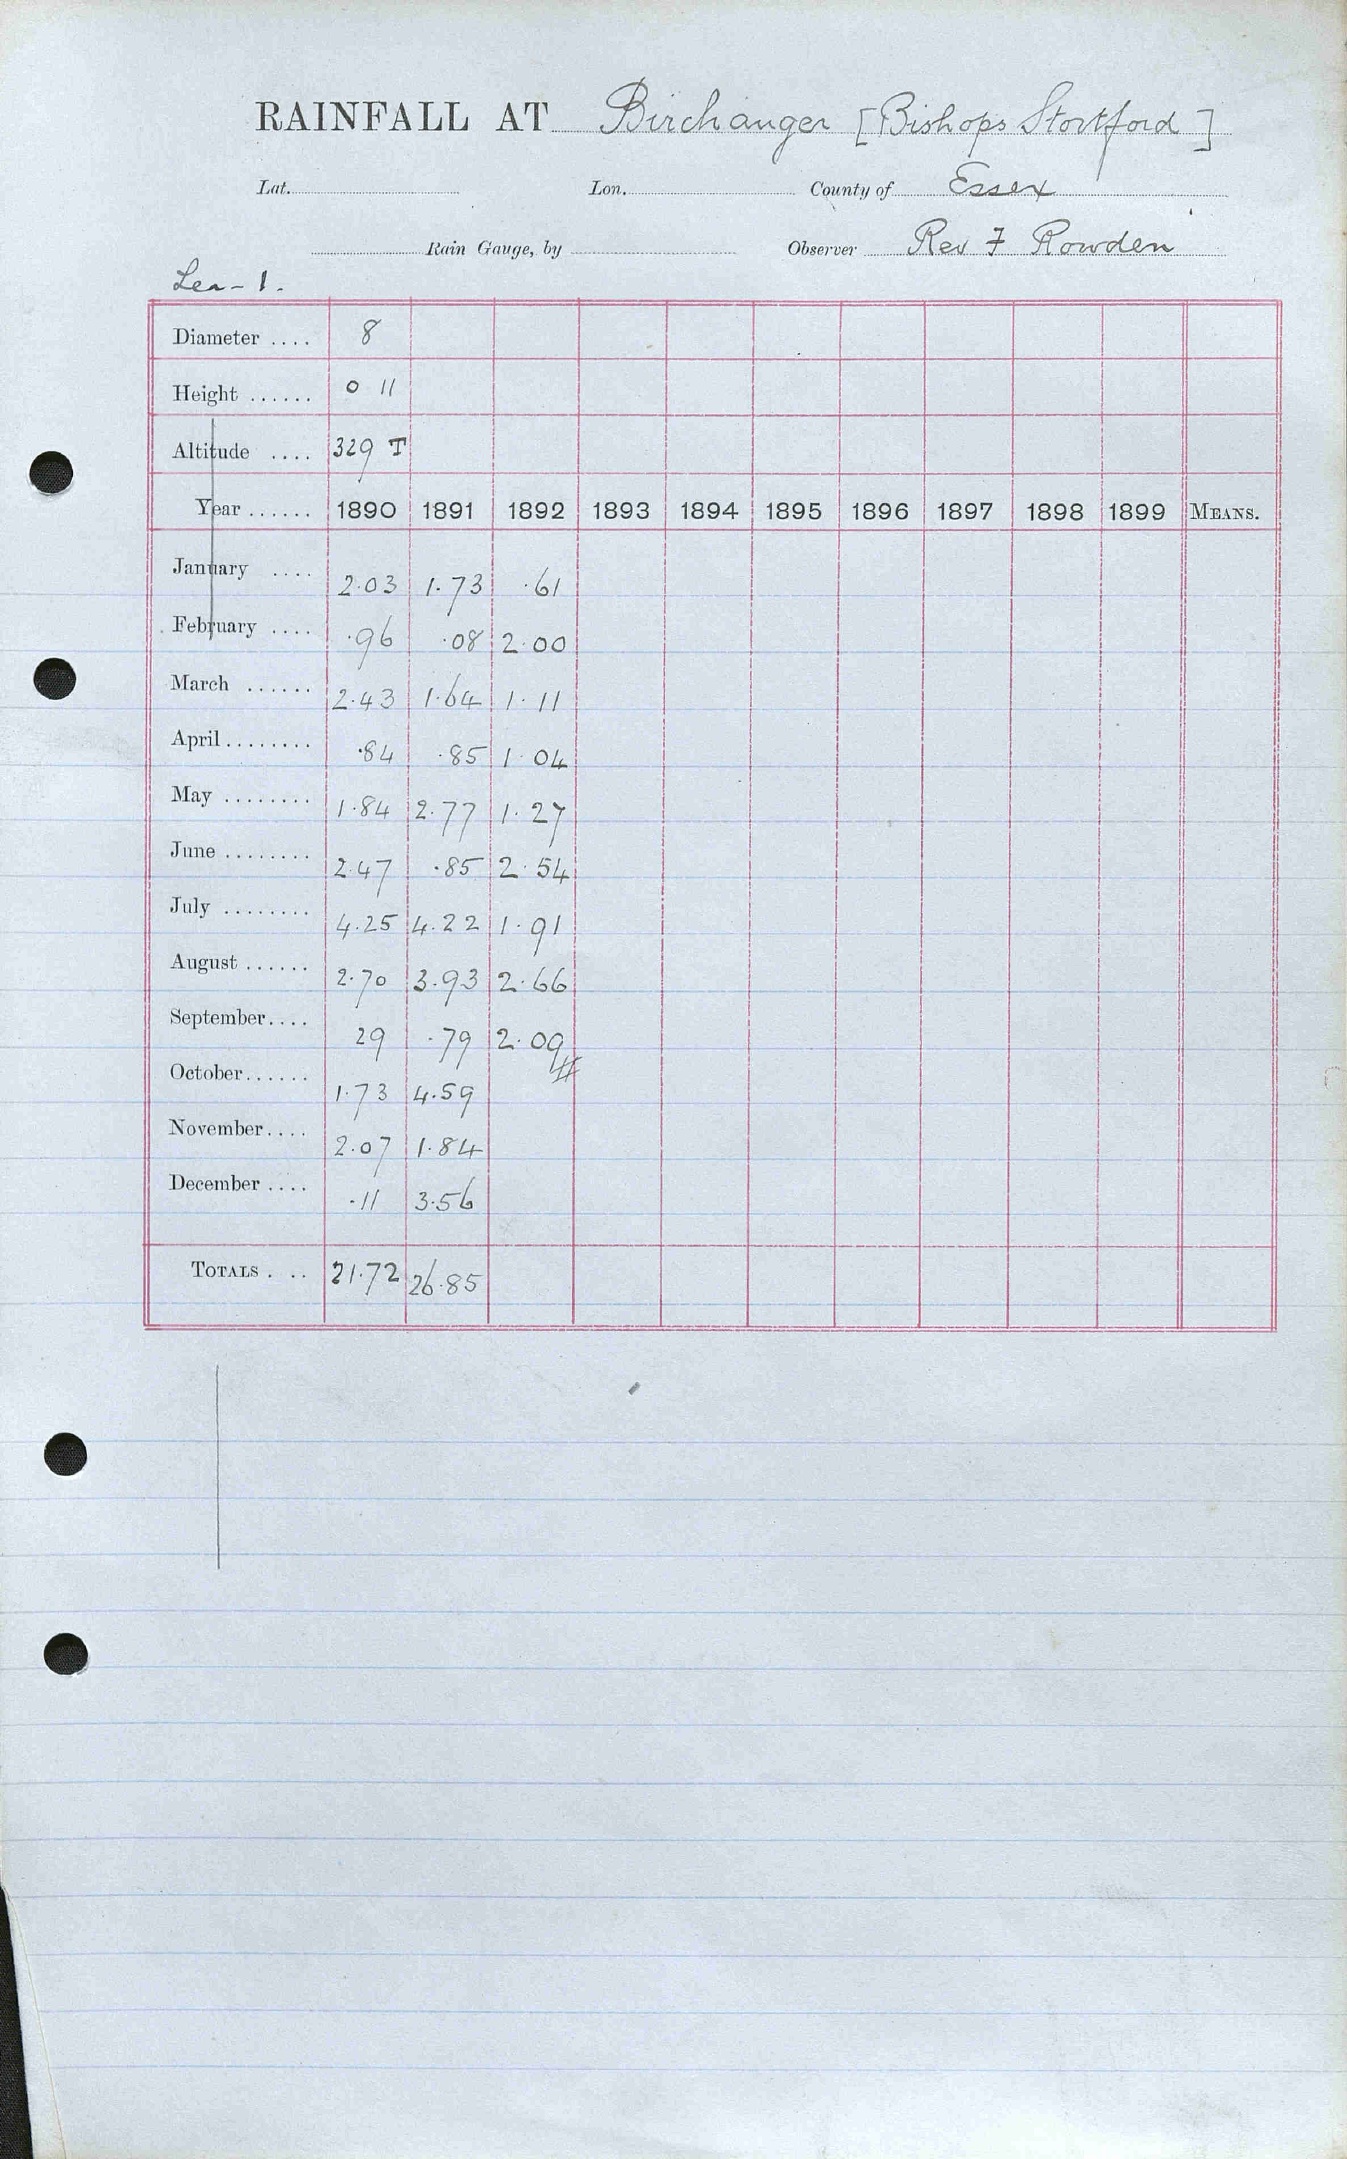 RAINFALL AT Birchanger [Bishops Stortford]
Lat. Lon. County of Essex
Rain Gauge, by Observer Rev F Rowden
Lea - 1.
Diameter .... 8
Height ...... 0 11
Altitude .... 329 T
Year ...... 1890 1891 1892 1893 1894 1895 1896 1897 1898 1899 MEANS.
January .... 2.03 1.73 .61
February .... .96 .08 2.00
March ...... 2.43 1.64 1.11
April ........ .84 .85 1.04
May ........ 1.84 2.77 1.27
June ........ 2.47 .85 2.54
July ........ 4.25 4.22 1.91
August ...... 2.70 3.93 2.66
September.... 29 .79 2.09
October...... 1.73 4.59
November.... 2.07 1.84
December .... .11 3.56
TOTALS . .. 21.72 26.85